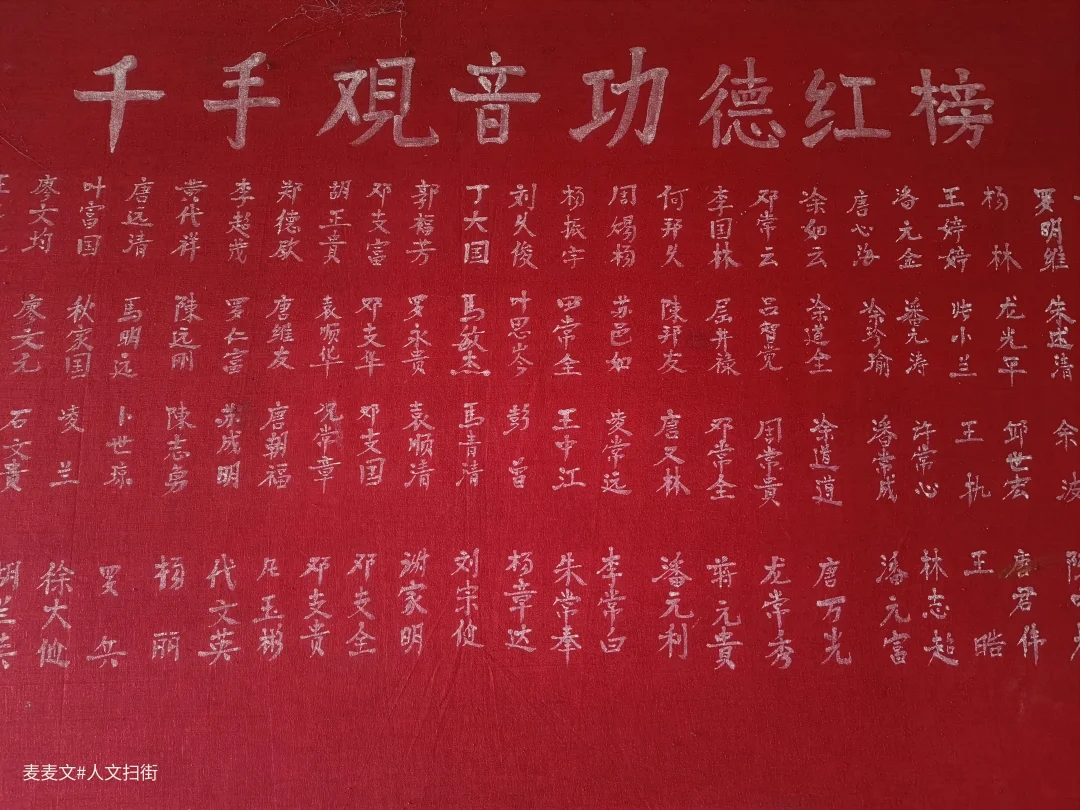 千手观音功德红榜
廖文均 叶富国 唐远清 黄代祥 李超茂 郑德欧 胡玉貴 邓支富 郭福芳 丁大国 刘久俊 杨振宇 周锡杨 何邦久 李国林 邓常云 涂如云 唐心海 潘元金 王婷婷 杨林 罗明维
廖文元 秋家国 馬明远 陳远丽 罗仁富 唐维友 袁顺华 邓支华 罗永貴 馬敏杰 叶思岑 罗常全 苏邑如 陳邦友 屈昇禄 吕智觉 涂道全 涂珍瑜 潘元涛 张小兰 龙光平 朱述清
石文貴 凌兰 卜世琼 陳志勇 成明 唐朝福 况常章 邓支国 袁顺清 馬青清 彭曾 王中江 凌常远 唐又林 邓常全 周常貴 涂道道 潘常成 许常心 王执 邱世宏 余波
胡兰英 徐大他 罗兵 杨丽 代文英 玉彬 邓支贵 邓支全 谢家明 刘宗他 杨章达 朱常奉 李常白 潘元利 蒋元貴 龙常秀 唐万光 潘元富 林志超 王皓 唐君伟
麦麦文#人文扫街